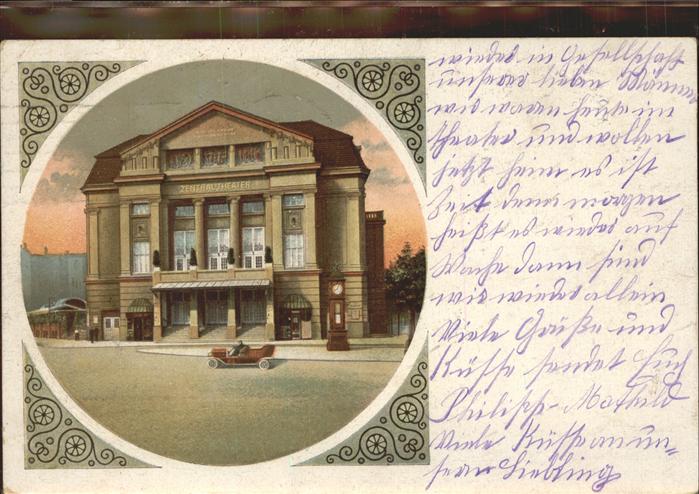 ZENTRALTHEATER
wieder in Gesellschaft
unserer lieben Männer
wir waren heute im
Theater und wollen
jetzt heim es ist
Zeit denn morgen
heißt es wieder auf
Wache dann sind
wir wieder allein
Viele Grüße und
Küsse sendet Euch
Philipp - Mathild
Viele Küsse an un-
sern Liebling